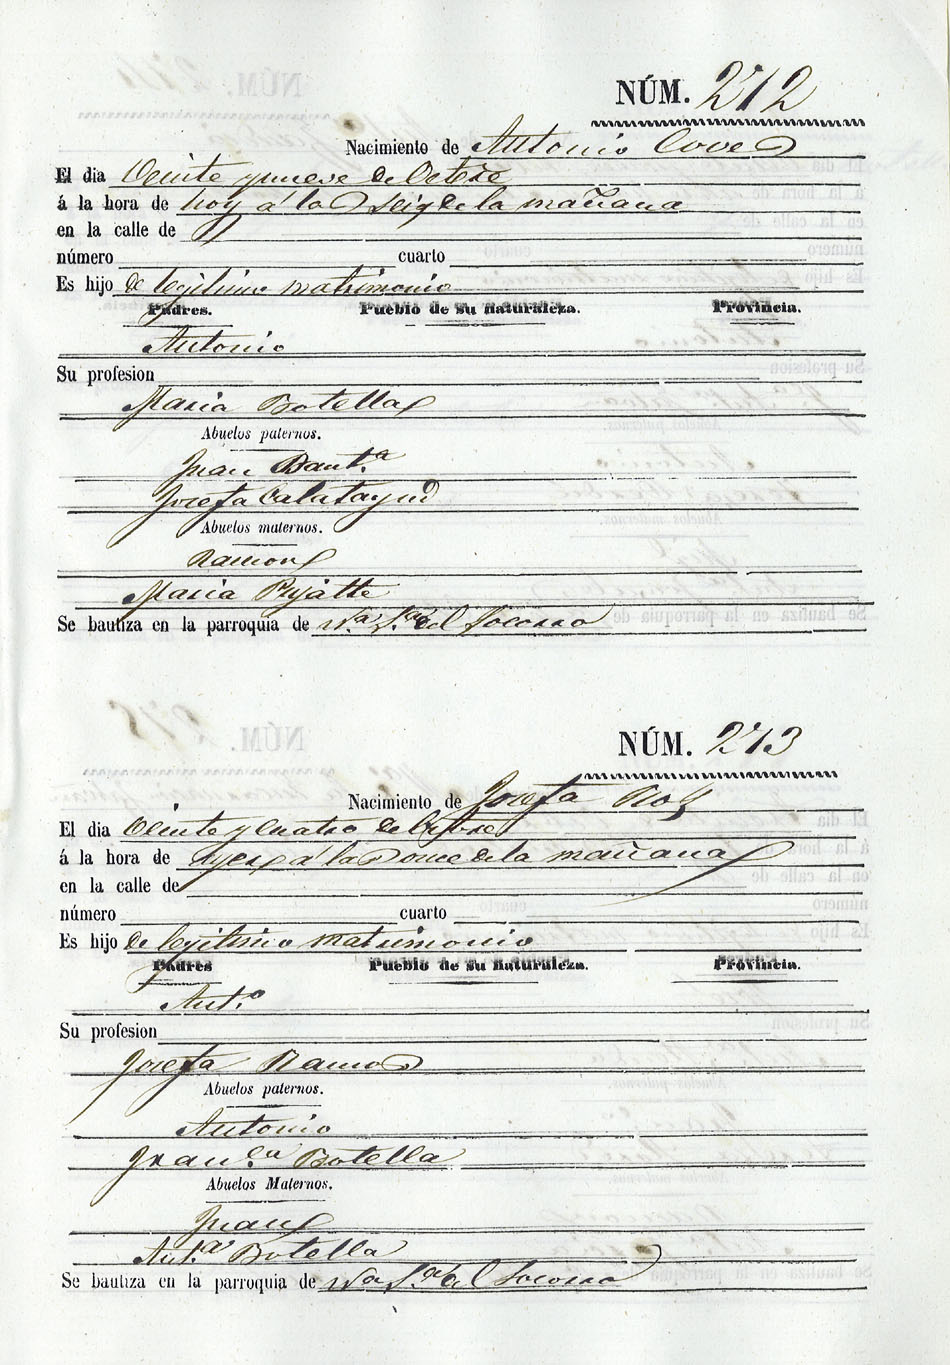 NÚM. 272
Nacimiento de Antonio Coves
El dia Veinte y nueve de Octbre
á la hora de hoy á las seis de la mañana
en la calle de
número cuarto
Es hijo de legitimo matrimonio
Padres. Pueblo de su naturaleza. Provincia.
Antonio
Su profesion
Maria Botella
Abuelos paternos.
Juan Baut.a
Josefa Calatayud
Abuelos maternos.
Ramon
Maria
Se bautiza en la parroquia de Na. Sa. del Socorro
NÚM. 273
Nacimiento de Josefa
El dia Veinte y cuatro de
á la hora de ayer á las once de la mañana
en la calle de
número cuarto
Es hijo de legitimo matrimonio
Padres Pueblo de su naturaleza. Provincia.
Ant.o
Su profesion
Josefa Ramos
Abuelos paternos.
Antonio
Fran.ca Botella
Abuelos Maternos.
Juan
Ant.a Botella
Se bautiza en la parroquia de Na. Sa. del Socorro